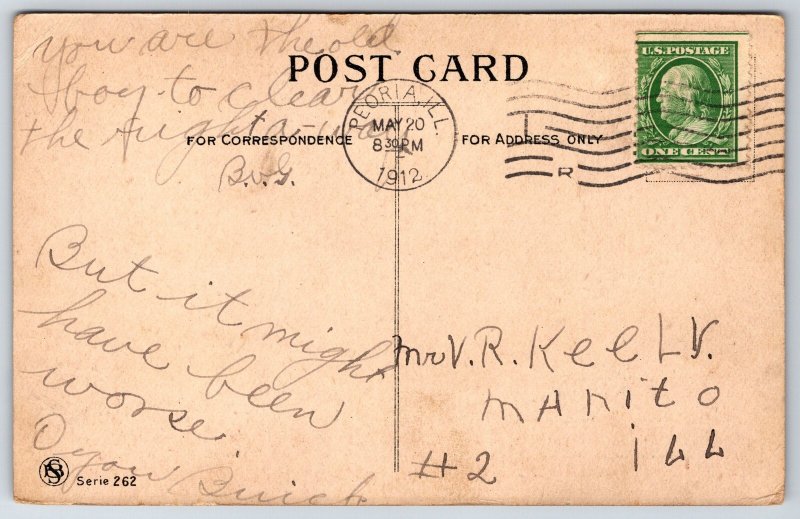 you are the old
boy to clear
the right a-way
B.v.G.
POST CARD
FOR CORRESPONDENCE
FOR ADDRESS ONLY
PEORIA, ILL.
MAY 20
8 30 PM
1912
R
U.S. POSTAGE
ONE CENT
But it might
have been
worse.
O you Buick
Mr V. R. KeeLy.
MANito
#2 iLL
SB
Serie 262